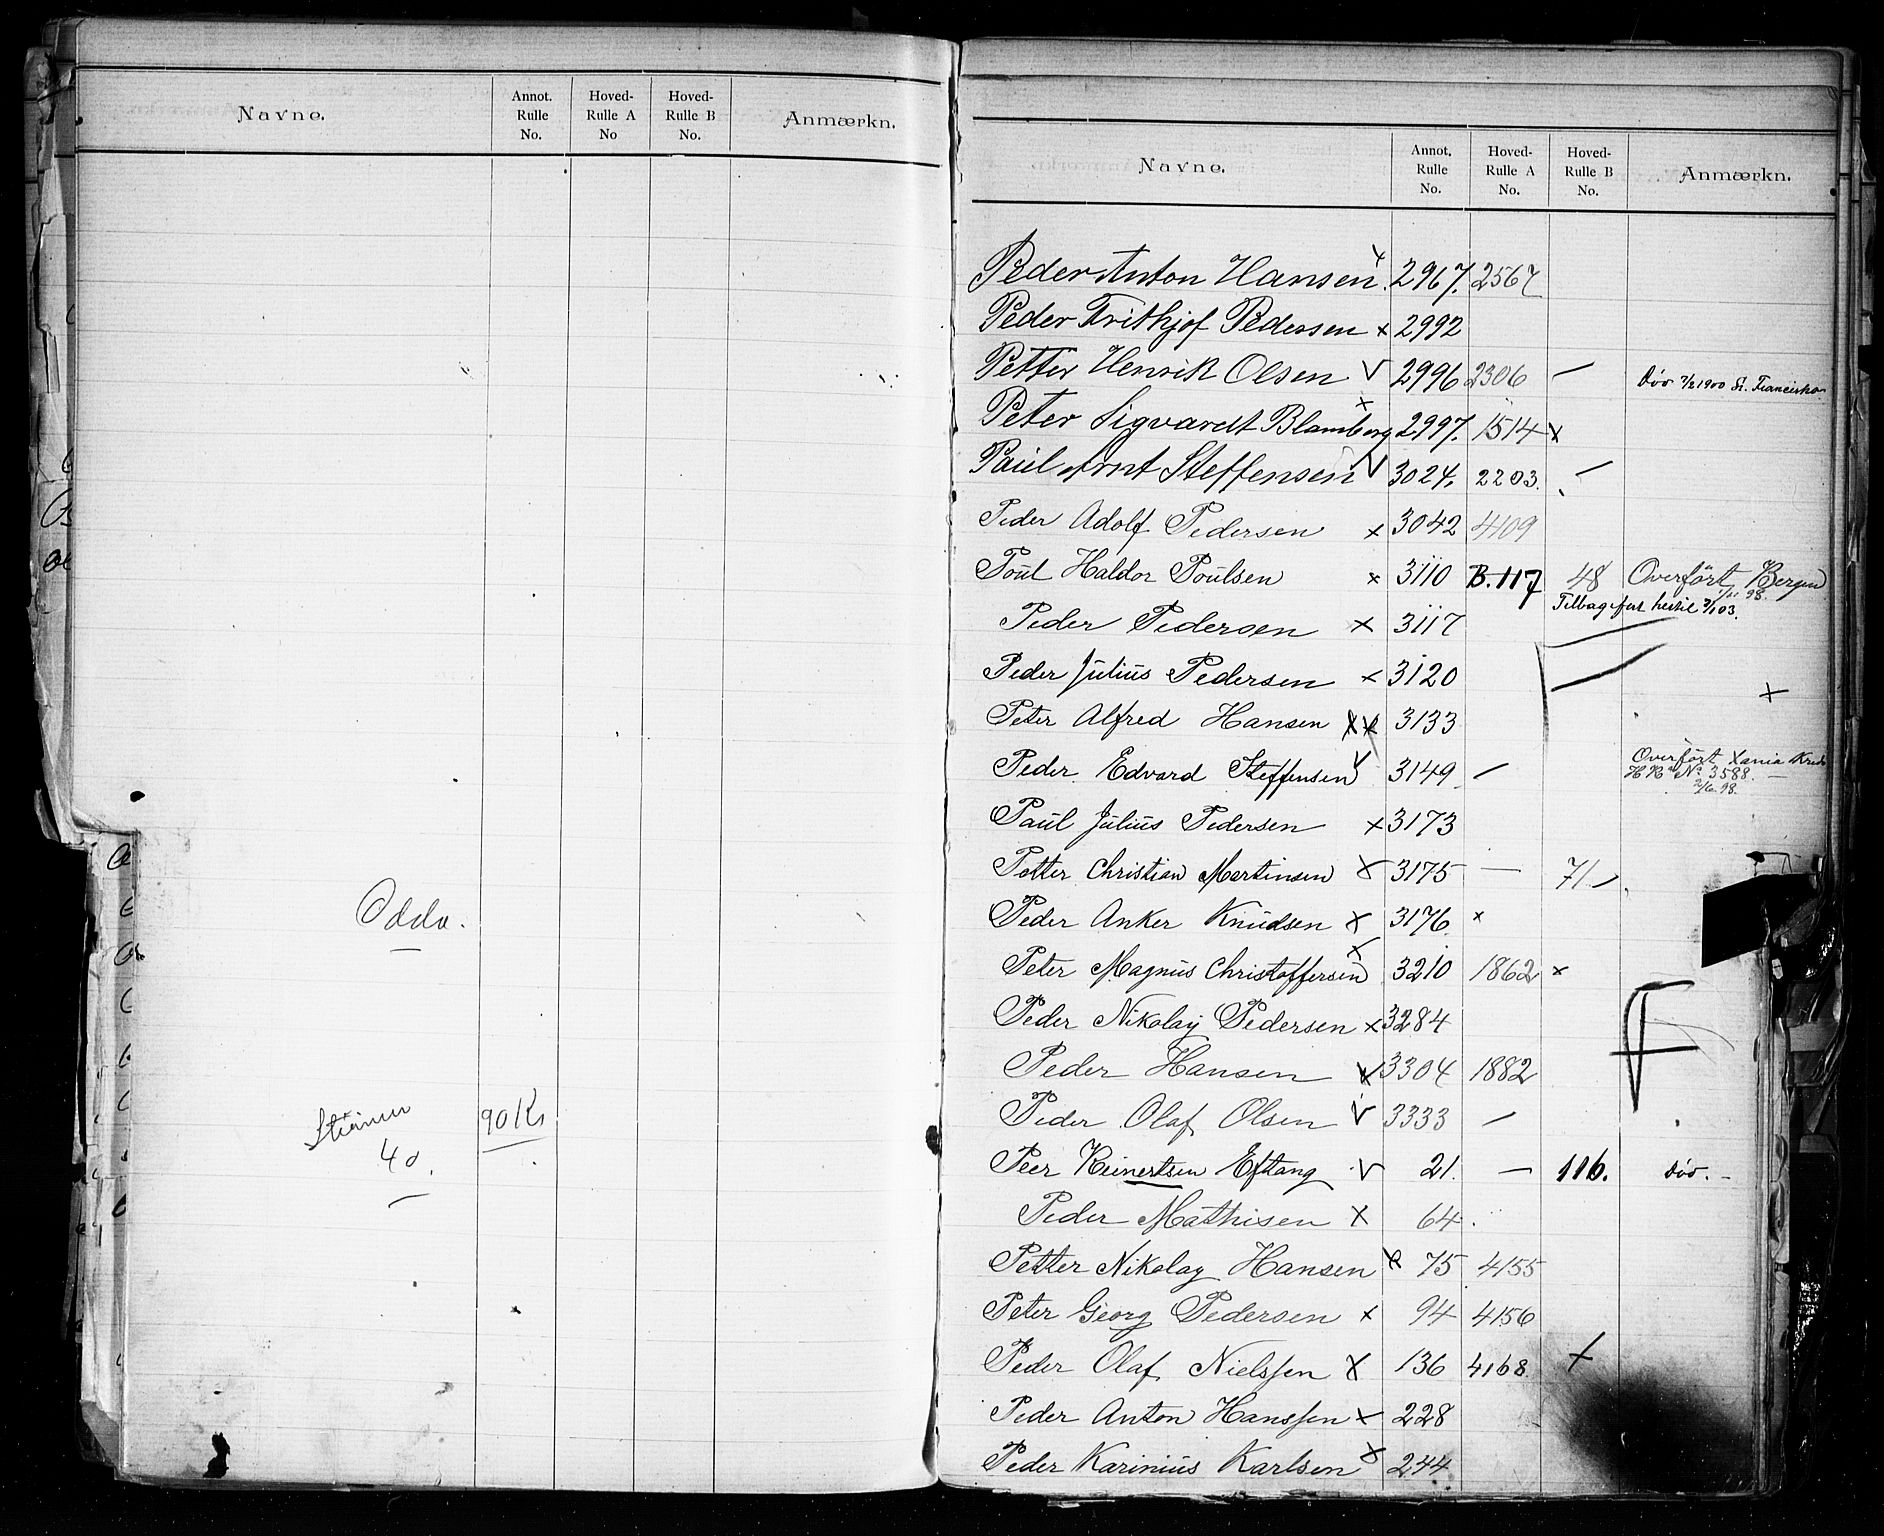 Navne. Annot. Rulle No. Hoved-Rulle A No Hoved-Rulle B No. Anmærkn.
Odda.
90 Kr
40.
Navne. Annot. Rulle No. Hoved-Rulle A No. Hoved-Rulle B No. Anmærkn.
Peder Anton Hansen x 2967. 2567
Peder Frithjof Pedersen x 2992
Petter Henrik Olsen V 2996 2306 — Död 7/2 1900 St. Francisko
Peter Sigvardt Blomberg x 2997. 1514 x
Paul Arnt Steffensen V 3024. 2203. —
Peder Adolf Pedersen x 3042 4109
Poul Haldor Poulsen x 3110 B. 117 48 Overført Bergen
98.
Tilbageført hertil 2/1 03.
Peder Pedersen x 3117
Peder Julius Pedersen x 3120
x
Peter Alfred Hansen xx 3133
Peder Edvard Steffensen V 3149 — Overført Xania Kreds
HRa No 3588. —
2/6 98.
Paul Julius Pedersen x 3173
Petter Christian Martinsen x 3175 — 71. —
Peder Anker Knudsen x 3176. x
Peter Magnus Christoffersen x 3210 1862 x
Peder Nikolay Pedersen x 3284
F
Peder Hansen x 3304 1882
Peder Olaf Olsen V 3333 —
Peer Reinertsen Eftang V 21. — 116. Död. —
Peder Mathisen x 64.
Petter Nikolay Hansen x 75 4155
Peter Georg Pedersen x 94 4156
Peder Olaf Nielssen x 136 4168. x
Peder Anton Hanssen x 228
Peder Karinius Karlsen x 244